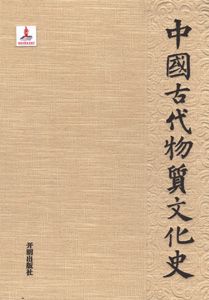 中國古代物質文化史
开明出版社